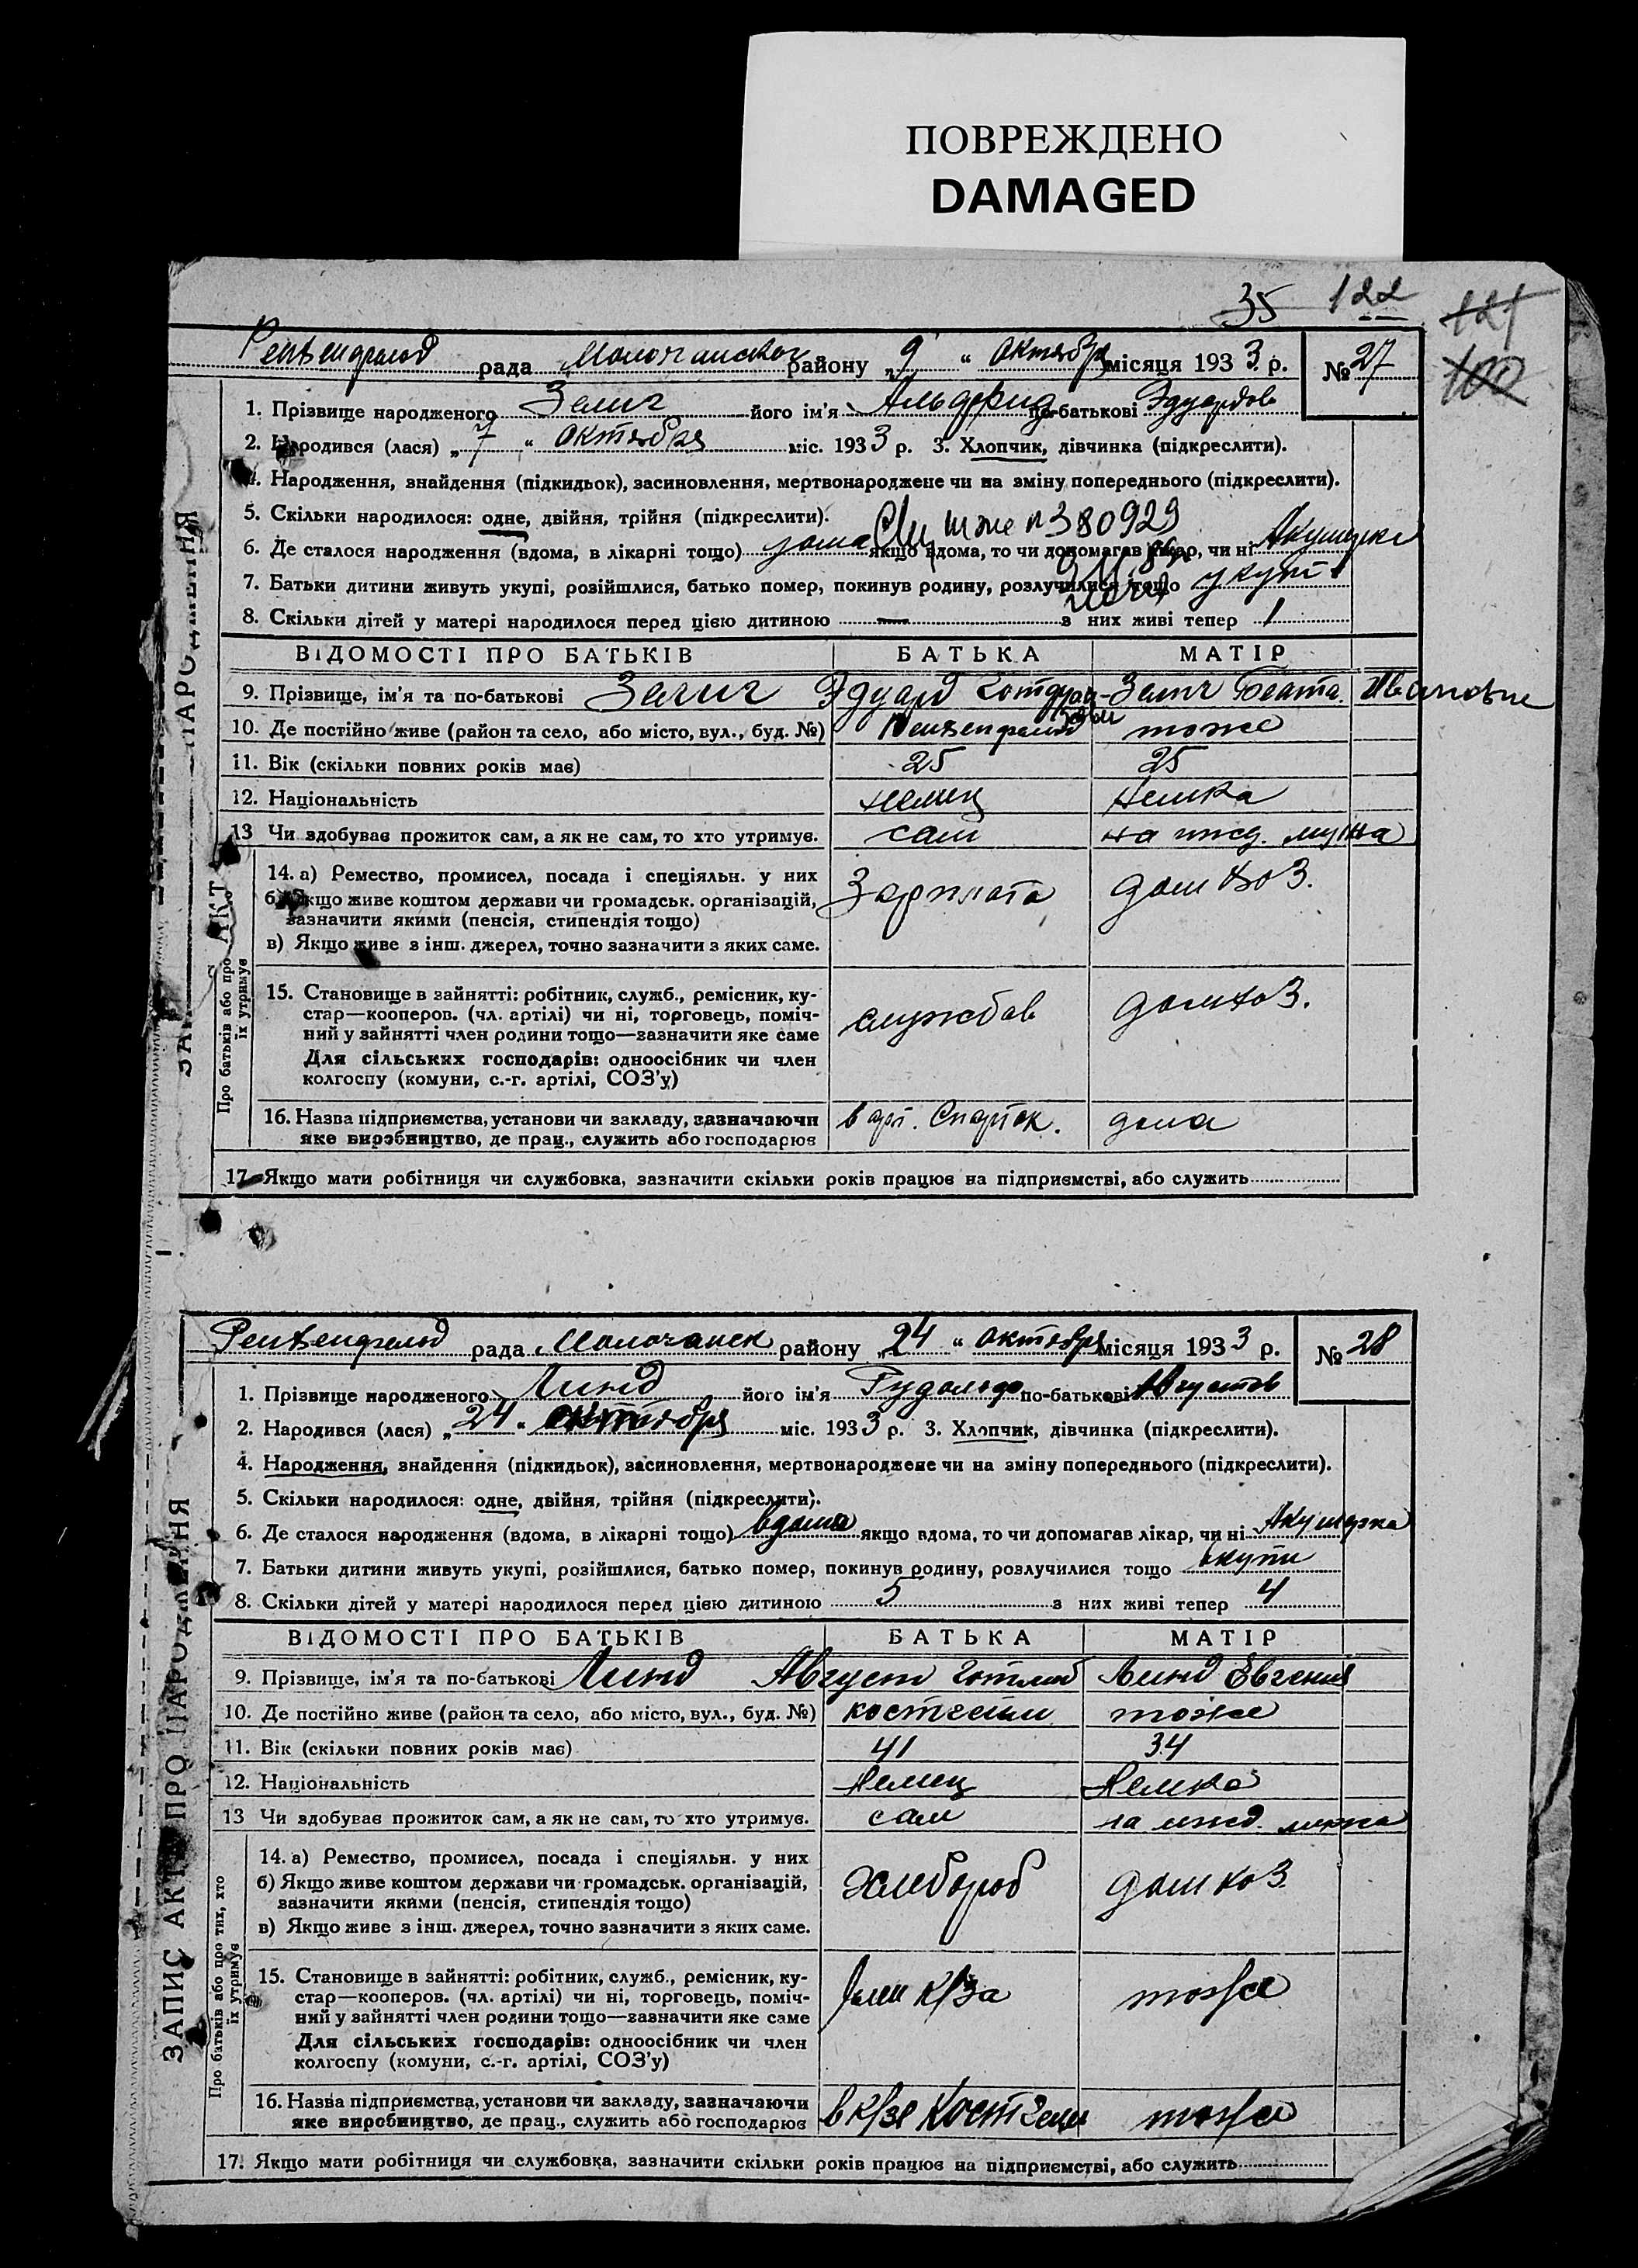 ПОВРЕЖДЕНО
DAMAGED
35 122 121
100
рада района району „9“ октября місяця 1933 р. №27
1. Прізвище народженого Зелиг його ім'я Альфрид по-батькові Эдуардов
2. Народився (лася) „7“ октября міс. 1933 р. 3. Хлопчик, дівчинка (підкреслити).
4. Народження, знайдення (підкидьок), засиновлення, мертвонароджене чи на зміну попереднього (підкреслити).
5. Скільки народилося: одне, двійня, трійня (підкреслити). № 380929
6. Де сталося народження (вдома, в лікарні тощо) дома якщо вдома, то чи допомагав лікар, чи ні Акушерка
7. Батьки дитини живуть укупі, розійшлися, батько помер, покинув родину, розлучилися тощо укупі
8. Скільки дітей у матері народилося перед цією дитиною — з них живі тепер 1
ВІДОМОСТІ ПРО БАТЬКІВ БАТЬКА МАТІР
9. Прізвище, ім'я та по-батькові Зелиг Эдуард Зелиг Беата
10. Де постійно живе (район та село, або місто, вул., буд. №) тоже
11. Вік (скільки повних років має) 25 25
12. Національність немец немка
13 Чи здобував прожиток сам, а як не сам, то хто утримує. сам на ижд. мужа
14. а) Ремество, промисел, посада і спеціяльн. у них Зарплата домхоз.
б) Якщо живе коштом держави чи громадськ. організацій,
зазначити якими (пенсія, стипендія тощо)
в) Якщо живе з інш. джерел, точно зазначити з яких саме.
15. Становище в зайнятті: робітник, служб., ремісник, ку-
стар—кооперов. (чл. артілі) чи ні, торговець, поміч- службов домхоз.
ний у зайнятті член родини тощо—зазначити яке саме
Для сільських господарів: одноосібник чи член
колгоспу (комуни, с.-г. артілі, СОЗ'у)
16. Назва підприємства, установи чи закладу, зазначаючи в арт. Спартак. дома
яке виробництво, де прац., служить або господарює
17. Якщо мати робітниця чи службовка, зазначити скільки років працює на підприємстві, або служить
рада Молочанск району „24“ октября місяця 1933 р. №28
1. Прізвище народженого Линд його ім'я Рудольф по-батькові Августов
2. Народився (лася) „24“ октября міс. 1933 р. 3. Хлопчик, дівчинка (підкреслити).
4. Народження, знайдення (підкидьок), засиновлення, мертвонароджене чи на зміну попереднього (підкреслити).
5. Скільки народилося: одне, двійня, трійня (підкреслити).
6. Де сталося народження (вдома, в лікарні тощо) вдома якщо вдома, то чи допомагав лікар, чи ні Акушерка
7. Батьки дитини живуть укупі, розійшлися, батько помер, покинув родину, розлучилися тощо вкупи
8. Скільки дітей у матері народилося перед цією дитиною 5 з них живі тепер 4
ВІДОМОСТІ ПРО БАТЬКІВ БАТЬКА МАТІР
9. Прізвище, ім'я та по-батькові Линд Август Готлиб Линд Евгения
10. Де постійно живе (район та село, або місто, вул., буд. №) костгейм тоже
11. Вік (скільки повних років має) 41 34
12. Національність Немец Немка
13 Чи здобував прожиток сам, а як не сам, то хто утримує. сам на ижд. мужа
14. а) Ремество, промисел, посада і спеціяльн. у них хлебороб домхоз
б) Якщо живе коштом держави чи громадськ. організацій,
зазначити якими (пенсія, стипендія тощо)
в) Якщо живе з інш. джерел, точно зазначити з яких саме.
15. Становище в зайнятті: робітник, служб., ремісник, ку- член к/за тоже
стар—кооперов. (чл. артілі) чи ні, торговець, поміч-
ний у зайнятті член родини тощо—зазначити яке саме
Для сільських господарів: одноосібник чи член
колгоспу (комуни, с.-г. артілі, СОЗ'у)
16. Назва підприємства, установи чи закладу, зазначаючи в к/зе Костгейм тоже
яке виробництво, де прац., служить або господарює
17. Якщо мати робітниця чи службовка, зазначити скільки років працює на підприємстві, або служить
ЗАПИС АКТУ ПРО НАРОДЖЕННЯ
Про батьків або про тих, хто
їх утримує